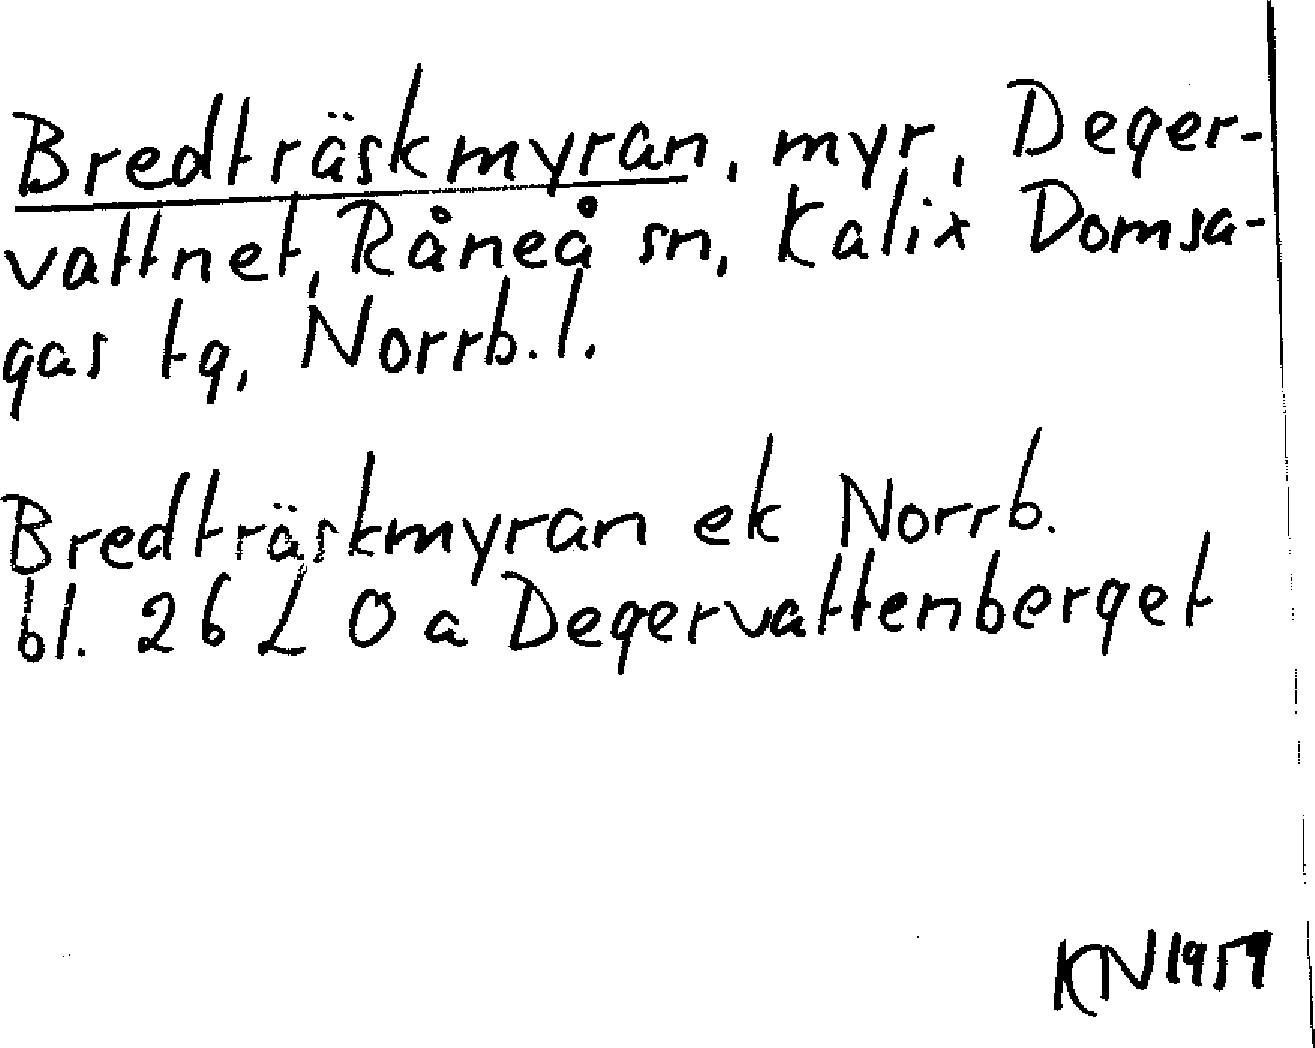 Bredträskmyran, myr, Deger-
vattnet, Råneå sn, Kalix Domsa-
gas tg, Norrb.l.
Bredträskmyran ek Norrb.
bl. 26 L 0 a Degervattenberget
KN 1959